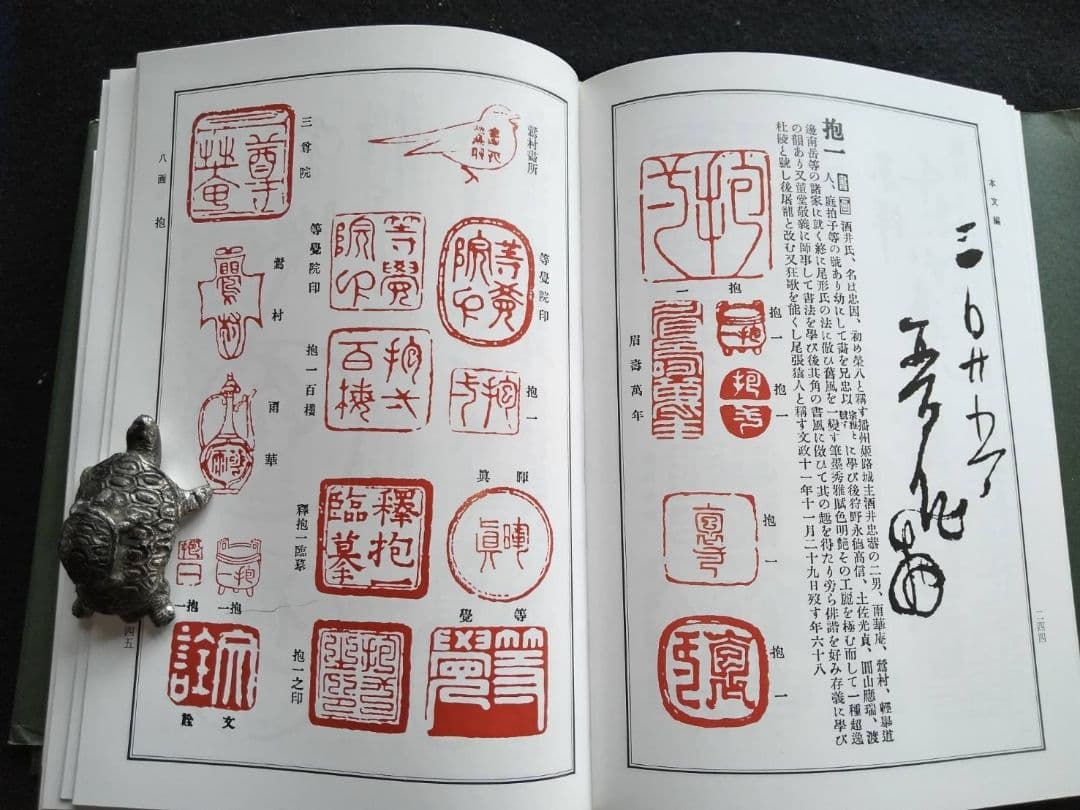 本文編
抱一
書
画
酒井氏、名は忠因、初め榮八と稱す播州姫路城主酒井忠器の二男、雨華庵、鶯村、輕擧道
人、庭拍子等の號あり幼にして畵を兄忠以
に學び後狩野永德高信、土佐光貞、圓山應瑞、渡
邊南岳等の諸家に就く終に尾形氏の法に倣ひ舊風を一變す筆墨秀雅賦色明艶その工麗を極む而して一種超逸
の韻あり又菫堂敬義に師事して書法を學び後其角の書風に倣ひて其の趣を得たり旁ら俳諧を好み存義に學び
杜陵と號し後屠龍と改む又狂歌を能くし尾張猿人と稱す文政十一年十一月二十九日歿す年六十八
抱一
抱一
抱一
眉壽萬年
抱一
抱一
二四四
鶯村畵所
等覺院印
抱一
師眞
等覺
三尊院
等覺院印
抱一百樓
釋抱一臨摹
抱一之印
鶯村
雨華
抱一
抱一
文詮
八画
抱
四五